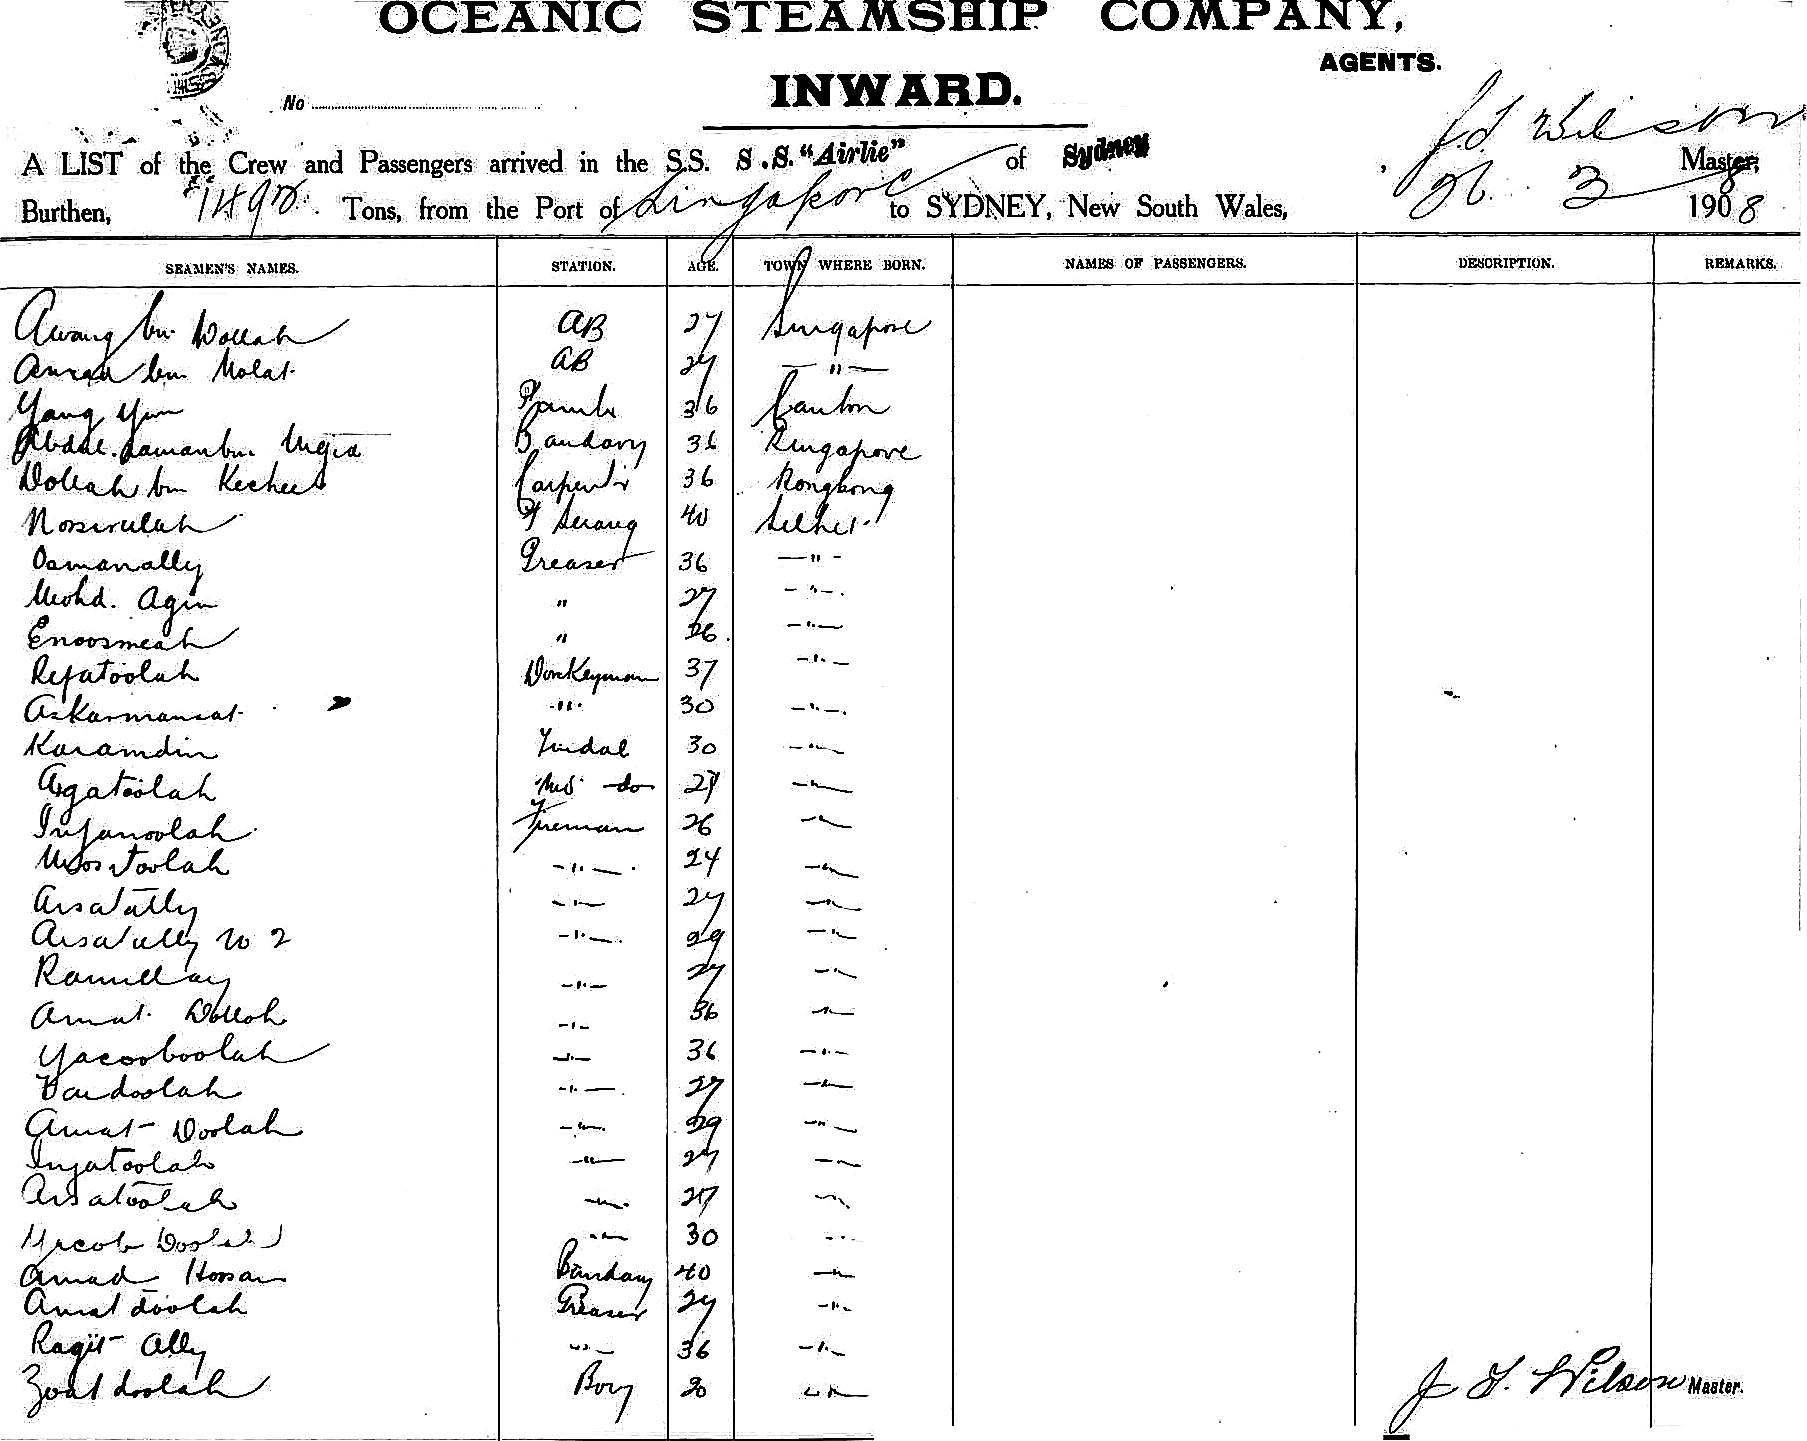 OCEANIC STEAMSHIP COMPANY,
AGENTS.
INWARD.
No
J. S. Wilson
A LIST of the Crew and Passengers arrived in the S.S. S.S. "Airlie" of Sydney Master,
Burthen, Tons, from the Port of Singapore to SYDNEY, New South Wales, 26. 3 1908
SEAMEN'S NAMES. STATION. AGE. TOWN WHERE BORN. NAMES OF PASSENGERS. DESCRIPTION. REMARKS.
Awang bin Dollah AB 27 Singapore
bin Molat AB 27 — " —
Yang Yun 36 Canton
Bandary 36 Singapore
Dollah bin Kecheel Carpenter 36 Hongkong
Nossirulah F Serang 40 Silhet
Osmanally Greaser 36 — " -
Mohd. Agin " 27 - " -
Enoosmeah " 26 - " -
Refatoolah Donkeyman 37 - " -
Askarmansat " 30 - " -
Karamdin Tindal 30 - " -
Agatoolah do 27 - " -
Infanoolah Fireman 26 - " -
Moostoolah - " - 24 - " -
Arsatally - " - 27 - " -
Arsatully No 2 - " - 29 - " -
- " - 27 - " -
Amat Dolloh - " - 36 - " -
Yacooboolah - " - 36 - " -
- " - 27 - " -
Amat Doolah - " - 29 - " -
Injatoolah - " - 27 - " -
Arsatoolah - " - 27 - " -
Yacob Doolah - " - 30 - " -
Amad Hossan Bandary 40 - " -
Amat doolah Greaser 27 - " -
Ragit Ally - " - 36 - " -
Zoatdoolah Boy 20 - " -
J. S. Wilson Master.